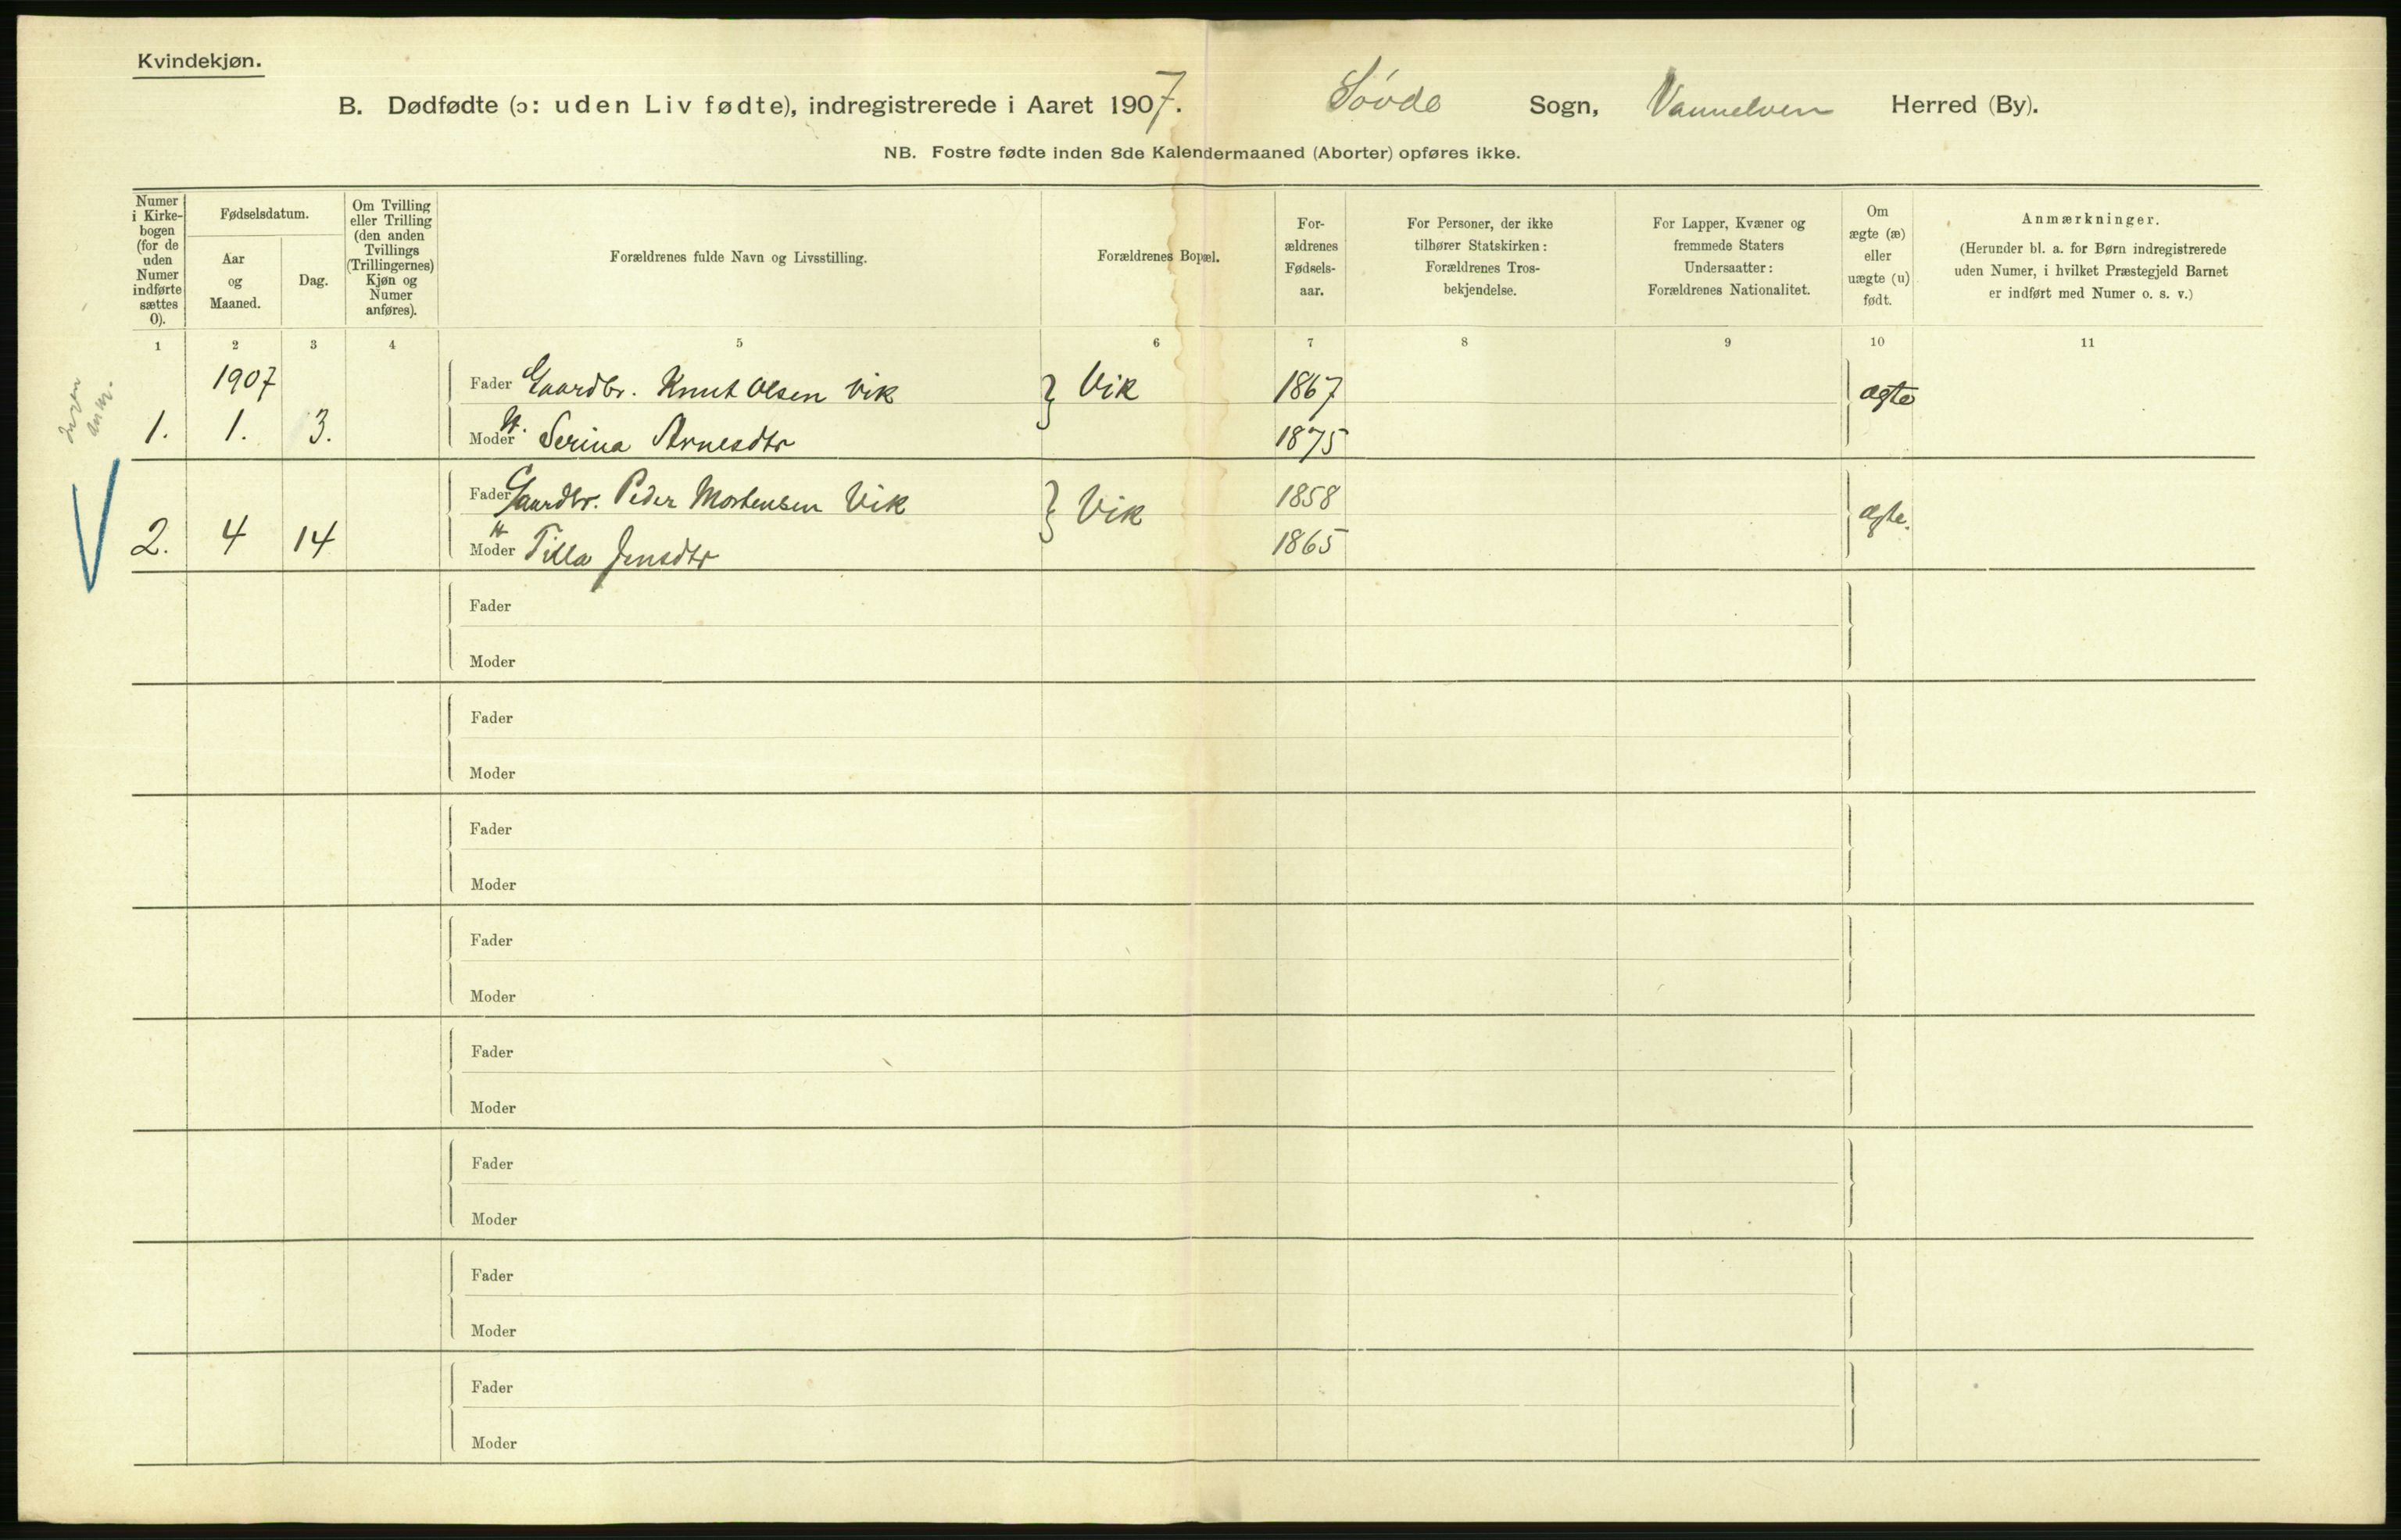 Kvindekjøn.
B. Dødfødte (ɔ: uden Liv fødte), indregistrerede i Aaret 1907. Søvde Sogn, Vannelven Herred (By).
NB. Fostre fødte inden 8de Kalendermaaned (Aborter) opføres ikke.
Numer
i Kirke-
bogen
(for de
uden
Numer
indførte
sættes
0).
Fødselsdatum.
Aar
og
Maaned.
Dag.
Om Tvilling
eller Trilling
(den anden
Tvillings
(Trillingernes)
Kjøn og
Numer
anføres).
Forældrenes fulde Navn og Livsstilling.
Forældrenes Bopæl.
For-
ældrenes
Fødsels-
aar.
For Personer, der ikke
tilhører Statskirken:
Forældrenes Tros-
bekjendelse.
For Lapper, Kvæner og
fremmede Staters
Undersaatter:
Forældrenes Nationalitet.
Om
ægte (æ)
eller
uægte (u)
født.
Anmærkninger.
(Herunder bl. a. for Børn indregistrerede
uden Numer, i hvilket Præstegjeld Barnet
er indført med Numer o. s. v.)
1 2 3 4 5 6 7 8 9 10 11
1907 Fader Gaardbr. Knut Olsen Vik } Vik 1867 ægte
1. 1. 3. Moder H. Serina Arnesdtr 1875
Fader Gaardbr. Peder Mortensen Vik } Vik 1858 ægte.
2. 4 14 Moder H Tilla Jensdtr 1865
Fader
Moder
Fader
Moder
Fader
Moder
Fader
Moder
Fader
Moder
Fader
Moder
Fader
Moder
Fader
Moder